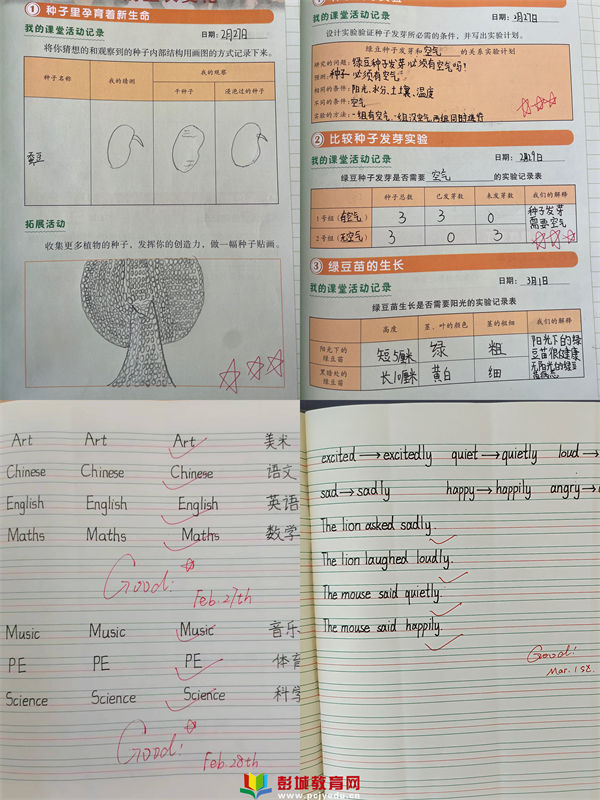 ① 种子里孕育着新生命
我的课堂活动记录 日期: 2月27日
将你猜想的和观察到的种子内部结构用画图的方式记录下来。
种子名称 我的猜测 我的观察
干种子 浸泡过的种子
蚕豆
拓展活动
收集更多植物的种子，发挥你的创造力，做一幅种子贴画。
我的课堂活动记录 日期: 2月27日
设计实验验证种子发芽所必需的条件，并写出实验计划。
绿豆种子发芽和空气的关系实验计划
研究的问题: 绿豆种子发芽必须有空气吗?
预测: 种子必须有空气。
相同的条件: 阳光、水分、土壤、温度
不同的条件: 空气
实验的方法: 一组有空气 一组没空气 两组同时进行
② 比较种子发芽实验
我的课堂活动记录 日期: 2月29日
绿豆种子发芽是否需要 空气 的实验记录表
种子总数 已发芽数 未发芽数 我们的解释
1号组(有空气) 3 3 0 种子发芽
需要空气
2号组(无空气) 3 0 3
③ 绿豆苗的生长
我的课堂活动记录 日期: 3月1日
绿豆苗生长是否需要阳光的实验记录表
高度 茎、叶的颜色 茎的粗细 我们的解释
阳光下的绿豆苗 短5厘米 绿 粗 阳光下的绿
豆苗很健康
黑暗处的绿豆苗 长10厘米 黄白 细 无阳光的绿豆
Art Art Art 美术
Chinese Chinese Chinese 语文
English English English 英语
Maths Maths Maths 数学
Good!
Feb.27th
Music Music Music 音乐
PE PE PE 体育
Science Science Science 科学
Good!
Feb.28th
excited→excitedly quiet→quietly loud→
sad→sadly happy→happily angry→
The lion asked sadly.
The lion laughed loudly.
The mouse said quietly.
The mouse said happily.
Good!
Mar.1st.
彭城教育网
www.pcjyedu.cn